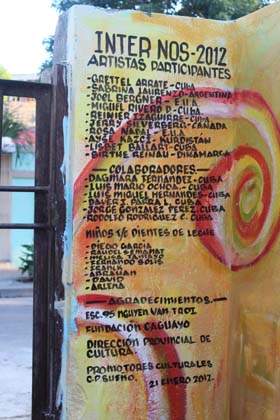 INTER NOS-2012
ARTISTAS PARTICIPANTES
-GRETTEL ARRATE-CUBA
-SABRINA LAURENZO-ARGENTINA
-JOEL BERGNER-E.U.A
-MIGUEL RIVERO P-CUBA.
-REINIER IZAGUIRRE-CUBA
-JERRY SILVERBERG-CANADA
-ROSA NADAL-E.U.A
-AYSE NAZCI-KURDISTAN
-LISBET BALLART-CUBA
-BIRTHE REINAU-DINAMARCA
-COLABORADORES-
-DAGMARA FERNANDEZ-CUBA
-LUIS MARIO OCHOA-CUBA
-LUIS MIGUEL HERNANDES-CUBA
-DAVER I. PARRA L. CUBA
-JORGE GONZALEZ PEREZ-CUBA
-RODOLFO RODRIGUEZ C-CUBA
NIÑOS DIENTES DE LECHE
-DIEGO GARCIA
-MELISA TAMAYO
-FERNANDO SOLIS
-ABRAHAN
-DAVID
-ARLENA
-AGRADECIMIENTOS.
ESC. 95 NGUYEN VAN TROI
FUNDACIÓN CAGUAYO
DIRECCIÓN PROVINCIAL DE
CULTURA.
PROMOTORES CULTURALES
C.P. SUEÑO. 21 ENERO 2012.